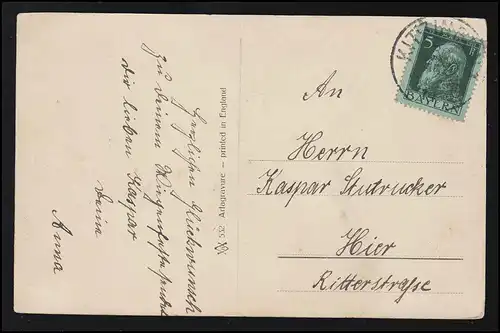 Herzlichen Glückwunsch
zu Deinem Wiegenfeste sendet
Dir lieben Kaspar
Deine
Anna
NN 552 Artogravure – printed in England
5
BAYERN
An
Herrn
Kaspar Stutrucker
Hier
Ritterstraße